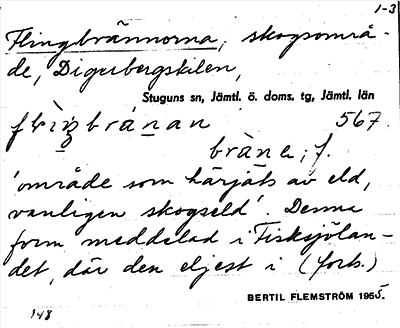 1-3
Flingbrännorna, skogsområ-
de, Digerbergskilen,
Stuguns sn, Jämtl. ö. doms. tg, Jämtl. län
567.
brä̀na; f.
'område som härjats av eld,
vanligen skogseld'. Denna
form meddelad i Fisksjölan-
det, där den eljest i (forts.)
BERTIL FLEMSTRÖM 1955.
148